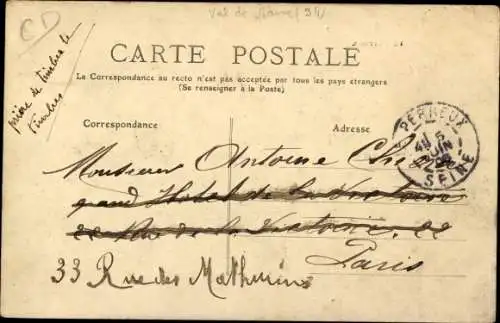 CD
Val de Marne (94)
CARTE POSTALE
La Correspondance au recto n'est pas acceptée par tous les pays étrangers
(Se renseigner à la Poste)
prière de timbrer le
timbres
Correspondance
Adresse
PERREUX
5
JUIN
SEINE
Monsieur Antoine
grand Hotel de la Victoire
22 Rue de la Victoire 22
Paris
33 Rue des Mathurins